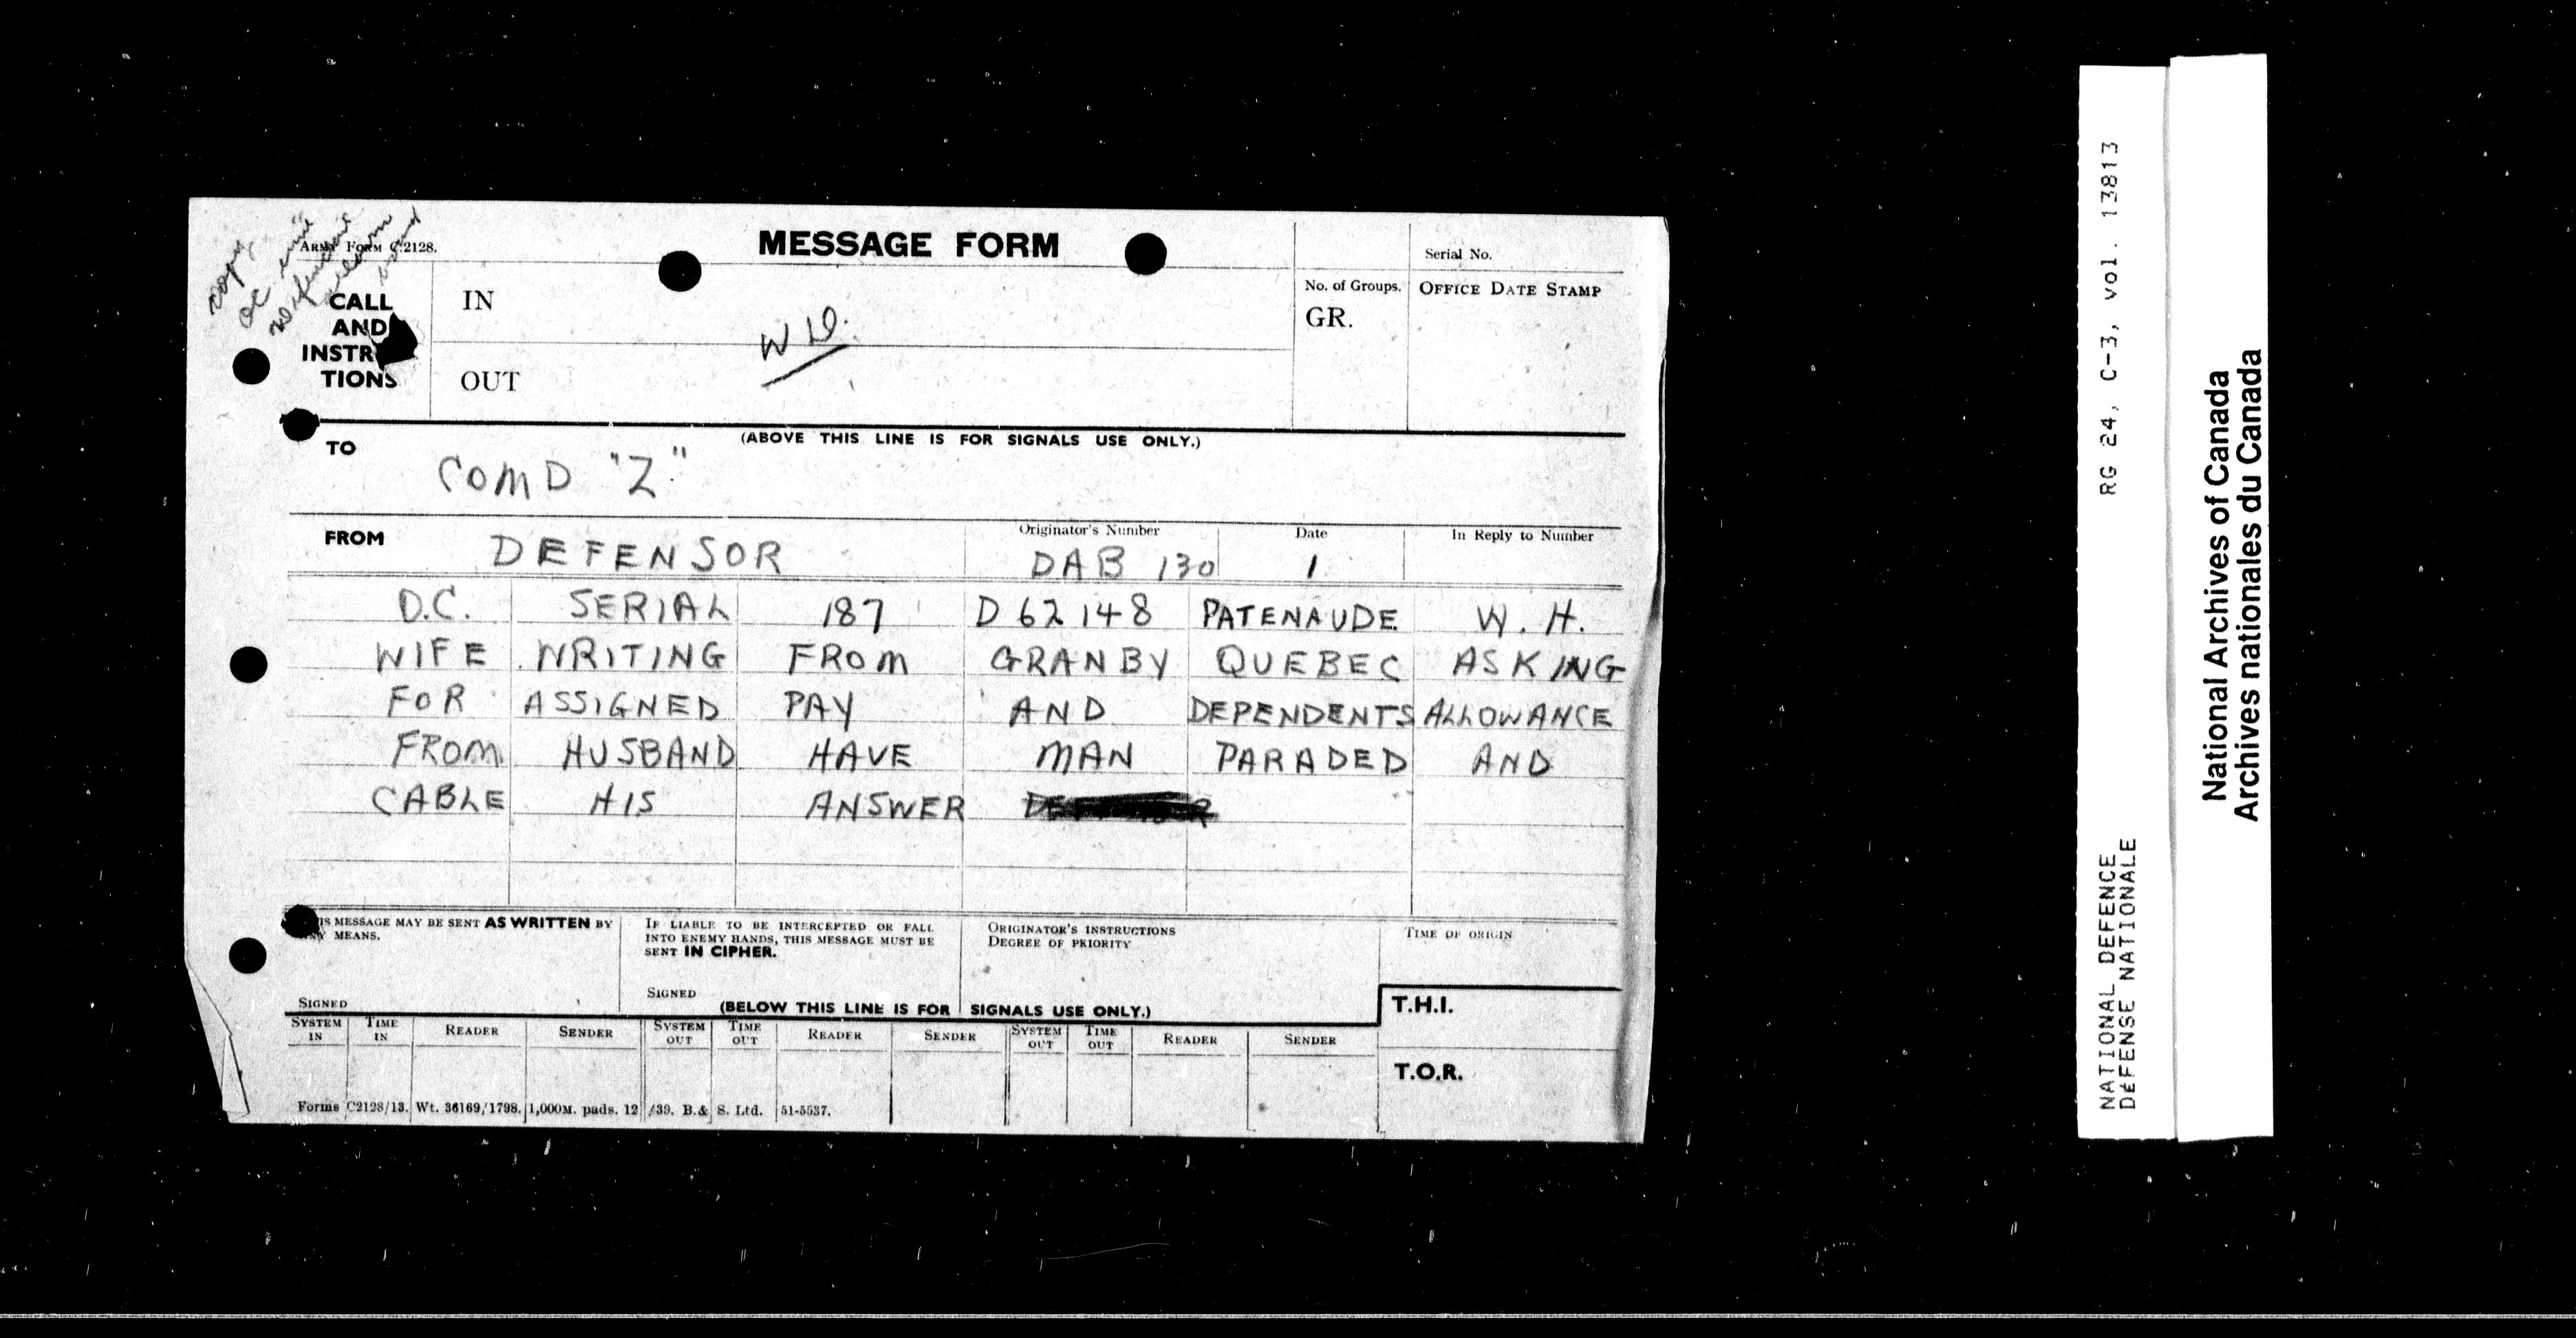 ARMY FORM C.2128.
MESSAGE FORM
Serial No.
CALL AND INSTR TIONS
IN
No. of Groups.
GR.
OFFICE DATE STAMP
W D.
OUT
(ABOVE THIS LINE IS FOR SIGNALS USE ONLY.)
TO
COMD "Z"
FROM DEFENSOR
Originator's Number
DAB 130
Date
1
In Reply to Number
D.C. SERIAL 187 D 62148 PATENAUDE W. H.
WIFE WRITING FROM GRANBY QUEBEC ASKING
FOR ASSIGNED PAY AND DEPENDENTS ALLOWANCE
FROM HUSBAND HAVE MAN PARADED AND
CABLE HIS ANSWER
IS MESSAGE MAY BE SENT AS WRITTEN BY
MEANS.
SIGNED
IF LIABLE TO BE INTERCEPTED OR FALL
INTO ENEMY HANDS, THIS MESSAGE MUST BE
SENT IN CIPHER.
SIGNED
ORIGINATOR'S INSTRUCTIONS
DEGREE OF PRIORITY
TIME OF ORIGIN
(BELOW THIS LINE IS FOR SIGNALS USE ONLY.)
T.H.I.
SYSTEM IN TIME IN READER SENDER SYSTEM OUT TIME OUT READER SENDER SYSTEM OUT TIME OUT READER SENDER
T.O.R.
Forms C2128/13. Wt. 36169/1798. 1,000M. pads. 12/39. B.& S. Ltd. 51-5537.
NATIONAL DEFENCE RG 24, C-3, vol. 13813
DÉFENSE NATIONALE
National Archives of Canada
Archives nationales du Canada